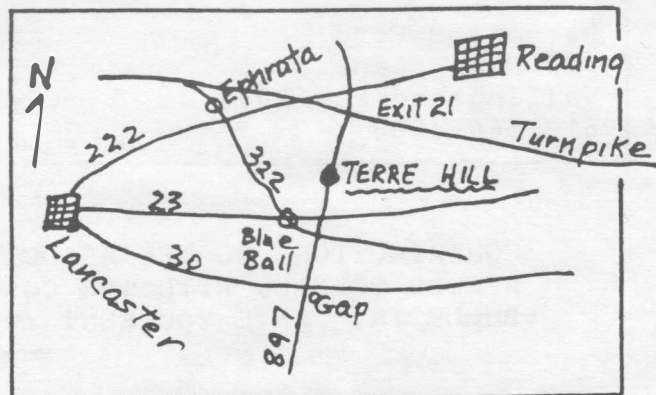 N
Ephrata
Reading
Exit 21
Turnpike
222
322
TERRE HILL
23
Blue
Ball
Lancaster
30
Gap
897